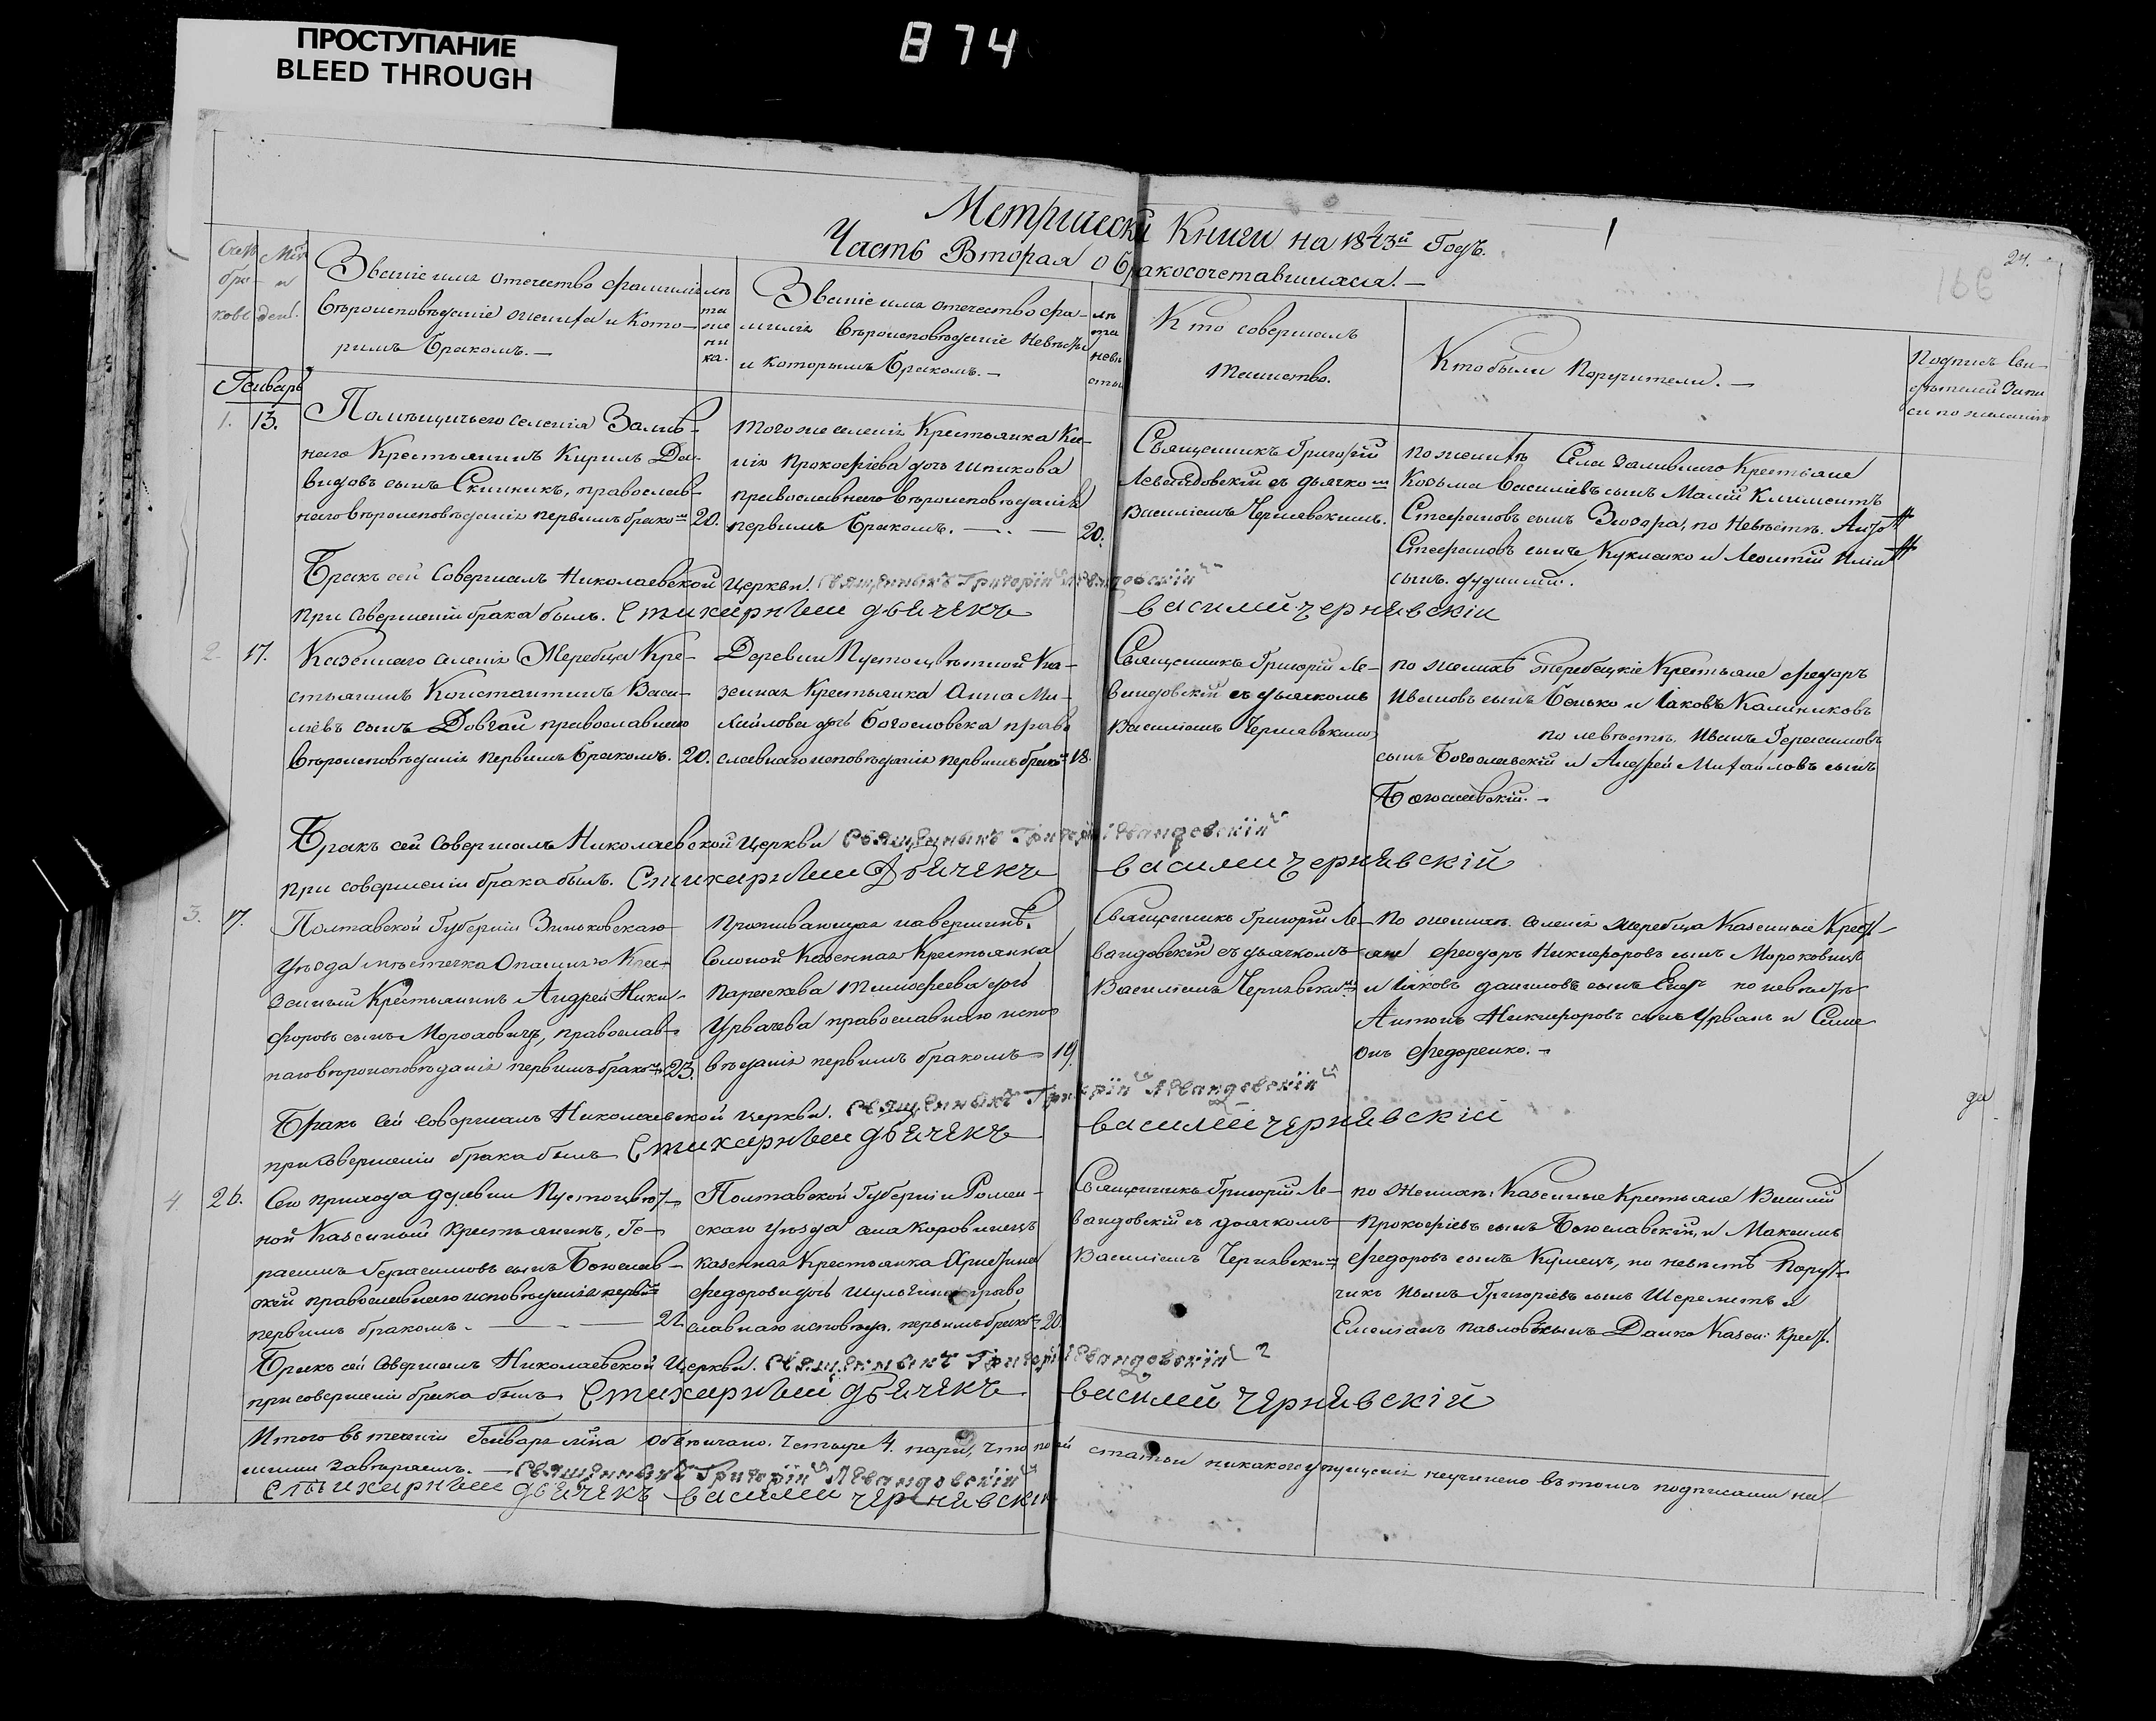 ПРОСТУПАНИЕ
BLEED THROUGH
874
Метрической Книги на 1843й Годъ.
Часть Вторая о бракосочетавшихся. —
24.
166
Счетъ браковъ
Мѣс. и день.
Званіе имя отечество фамилія
вѣроисповѣданіе жениха и кото-
римъ бракомъ. —
лѣта жениха.
Званіе имя отечество фа-
милія вѣроисповѣданіе невѣсты
и которымъ бракомъ. —
лѣта невѣсты
Кто совершалъ
таинство.
Кто были поручители. —
Подпись сви-
дѣтелей запи
си по желанію
Генварь
1. 13.
Помѣщичьего селенія Залив-
наго Крестьянинъ Кирилъ Да-
видовъ сынъ Скиникъ, православ-
наго вѣроисповѣданія первимъ бракомъ 20.
тогоже селенія Крестьянка Ке-
нія Прокофіева дочь Шпикова
православнаго вѣроисповѣданія
первимъ бракомъ. — 20.
Священникъ Григорій
Левандовскій съ дьячкомъ
Василіемъ Чернявскимъ.
по женихѣ Села Заливнаго Крестьяне
Козьма Василіевъ сынъ Малій Климентъ
Стефановъ сынъ по невѣстѣ.
Стефановъ сынъ Кукленко и Леонтій Иліи
сынъ.
Бракъ сей совершалъ Николаевской Церкви. Священникъ Григорій Левандовскій
при совершеніи брака былъ. Стихарный дьячекъ василий чернявскій
2. 17.
Казеннаго селенія Жеребца Кре-
стьянинъ Константинъ Васи-
лієвъ сынъ Довгай православнаго
вѣроисповѣданія первимъ бракомъ. 20.
Деревни Пустоцвѣтной Ка-
зенная Крестьянка Анна Ми-
хайлова дочь Богословска право
славнаго исповѣданія первимъ бракомъ 18.
Священникъ Григорій Ле-
вандовскій съ дьячкомъ
Василіемъ Чернявскимъ
по женихѣ Жеребецкіе Крестьяне Федоръ
Ивановъ сынъ Бонько и Іаковъ Калиниковъ
по невѣстѣ. Иванъ Герасимовъ
сынъ Богославскій и Андрей Михайловъ сынъ
Богославскій. —
Бракъ сей совершалъ Николаевской Церкви Священникъ Григорій Левандовскій
при совершеніи брака былъ. Стихарный Дьячекъ василий чернявскій
3. 17.
Полтавской Губерніи Зиньковскаго
Уѣзда мѣстечка Опашного Ка-
зенный Крестьянинъ Андрей Ники-
форовъ сынъ Мороховецъ, православ-
наго вѣроисповѣданія первимъ бракомъ 23.
Проживающая на вершинѣ
Солоной Казенная Крестьянка
Параскева Тимофеева дочь
Урванева православнаго испо
вѣданія первимъ бракомъ 19.
Священникъ Григорій Ле-
вандовскій съ дьячкомъ
Василіемъ Чернявскимъ
По женихѣ. селенія Жеребца Казенныя Крест-
яне Феодоръ Никифоровъ сынъ Мороховецъ
и Іаковъ Даниловъ сынъ по невѣстѣ
Антонъ Никифоровъ сынъ Урванъ и Симе
онъ Федоренко. —
Бракъ сей совершалъ Николаевской церкви. Священникъ Григорій Левандовскій
при совершеніи брака былъ Стихарный дьячекъ василий чернявскій
да
4. 26.
Сего прихода деревни Пустоцвѣт-
ной Казенный крестьянинъ, Ге-
расимъ Герасимовъ сынъ Богослав-
ский православнаго исповѣданія первимъ
первимъ бракомъ. — 21.
Полтавской Губерніи Ромен-
скаго Уѣзда села Коровинецъ
казенная Крестьянка Христина
Федорова дочь Шульгина право
славнаго исповѣд. первимъ бракомъ 20
Священникъ Григорій Ле-
вандовскій съ дьячкомъ
Василіемъ Чернявскимъ
по женихѣ: Казенные Крестьяне Василій
Прокофіевъ сынъ Богославскій, и Максимъ
Федоровъ сынъ Кушецъ, по невѣстѣ Поруч-
чикъ Иванъ Григоріевъ сынъ Шереметъ и
Емеліанъ Павловъ сынъ Данко Казен: крест.
Бракъ сей Совершалъ Николаевской Церкви. Священникъ Григорій Левандовскій
при совершеніи брака былъ Стихарный дьячекъ василий чернявскій
Итого въ теченіи Генваря мѣца обвѣнчано. четыре 4. пары, что по сей статьи никакого упущенія неучинено въ томъ подписами на
шими завѣряемъ. — Священникъ Григорій Левандовскій
Стихарный дьячекъ василий чернявскій